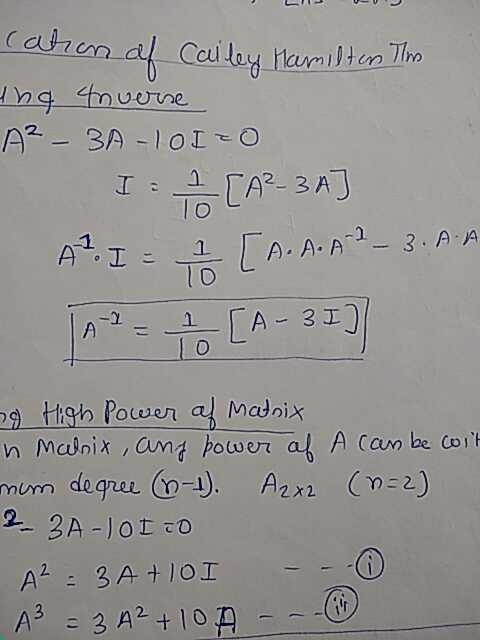 cation of Cailey Hamilton Thm
ing Inverse
A² - 3A - 10I = 0
I = 1/10 [A² - 3A]
A⁻¹. I = 1/10 [A. A. A⁻¹ - 3. A. A
A⁻¹ = 1/10 [A - 3I]
ng High Power of Matrix
n Matrix, any power of A can be writ
mum degree (n-1). A₂ₓ₂ (n=2)
2 - 3A - 10I = 0
A² = 3A + 10I - - - (i)
A³ = 3A² + 10A - - - (ii)